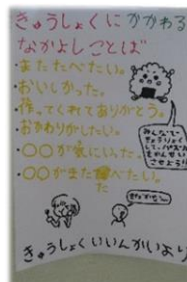 きゅうしょくにかかわる
なかよしことば
・またたべたい。
・おいしかった。
・作ってくれてありがとう。
・おかわりがしたい。
・○○が気にいった。
・○○がまた食べたい。
きゅうしょくいいんかいより